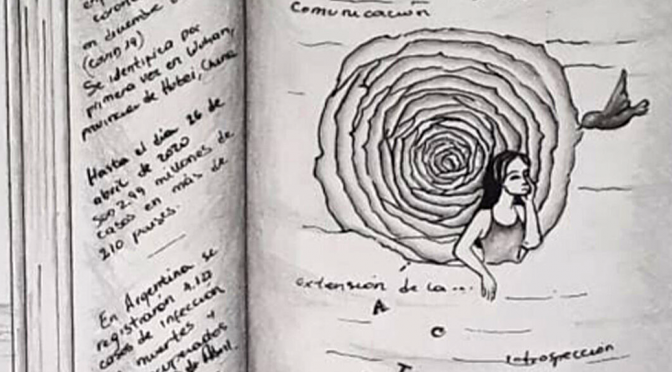 en diciembre
(COVID 19)
Se identifica por
primera vez en Wuhan,
provincia de Hubei, China
Hasta el día 26 de
abril de 2020
son 2.99 millones de
casos en más de
210 países.
En Argentina se
registraron
casos de infección
muertes y
recuperados
de Abril.
comunicación
extensión de la...
A
C
T
introspección